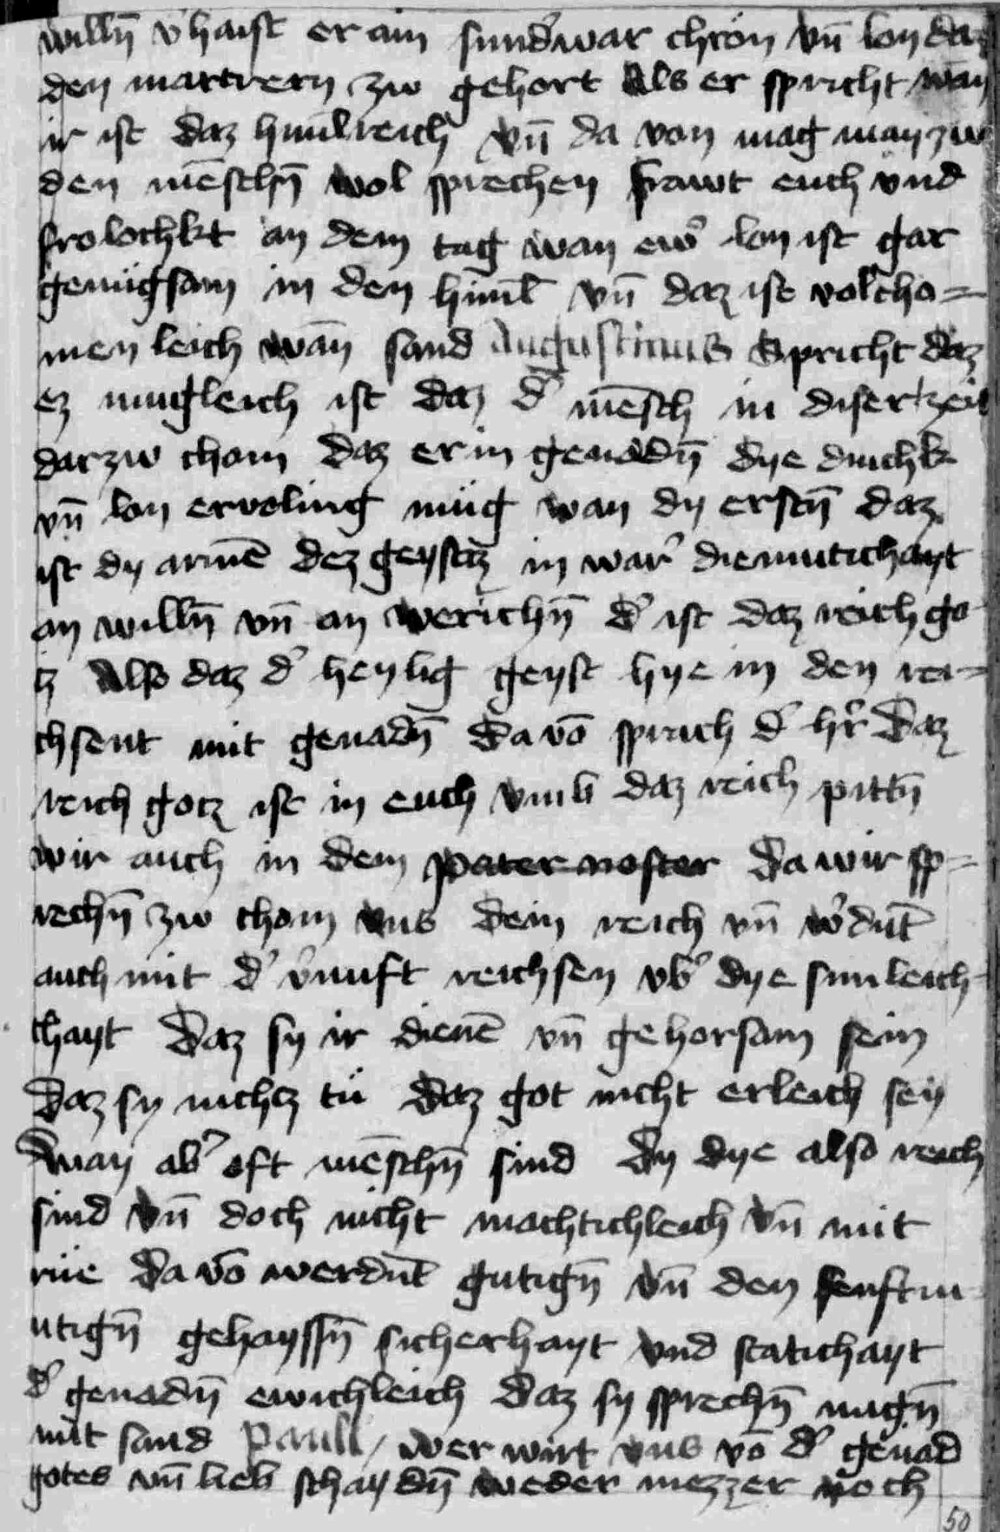 willn̄ v'haist er ain sund'war chron vn̄ lon daz
den martrern zw gehort Als er spricht wan
ir ist daz himlreich vn̄ da von mag man zw
den mēschn̄ wol sprechen frawt euch vnd
frolochkt an dem tag wan ew' lon ist gar
genugsam in den himl vn̄ daz ist volcho=
men leich wān sand Augustinus Spricht daz
ez mugleich ist daz d' mēsch in diser zeit
darzw chom daz er in genadn̄ dye druchk
vn̄ lon ervoling mug wan dy erstn̄ daz
ist dy armē dez geystz in war' diemutichayt
an willn̄ vn̄ an werichn̄ d' ist daz reich go
tz Also daz d' heylig geyst hye in den rei=
chsent mit genadn̄ da vō sprich d' hr̄ daz
reich gotz ist in euch vmb daz reich pittn̄
wir auch in dem pater noster da wir sp=
rechn̄ zw chom vns dein reich vn̄ w'dnt
auch mit d' v'nuft reichsen vb' dye sunleich
chayt daz sy ir dienē vn̄ gehorsam sein
daz sy nichtz tü daz got nicht erleich sey
wan ab' oft mēschn̄ sind dy dye also reich
sind vn̄ doch nicht machtichleich vn̄ mit
rüe da vō werdnt gutign̄ vn̄ den senftm
utign̄ gehayssn̄ sicherhayt vnd statichayt
d' genadn̄ ewichleich daz sy sprechn̄ mugn̄
mit sand Paull / wer wirt vns vō d' genad
gotes vn̄ lieb schaydn̄ weder mezzer noch
50